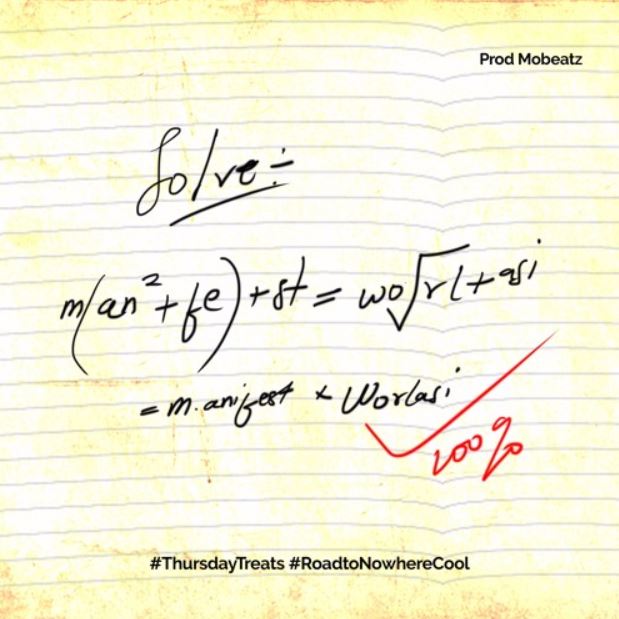 Prod Mobeatz
Solve:-
m(an²+fe)+st = wo√rl+asi
= m.anifest x Worlasi
100%
#ThursdayTreats #RoadtoNowhereCool